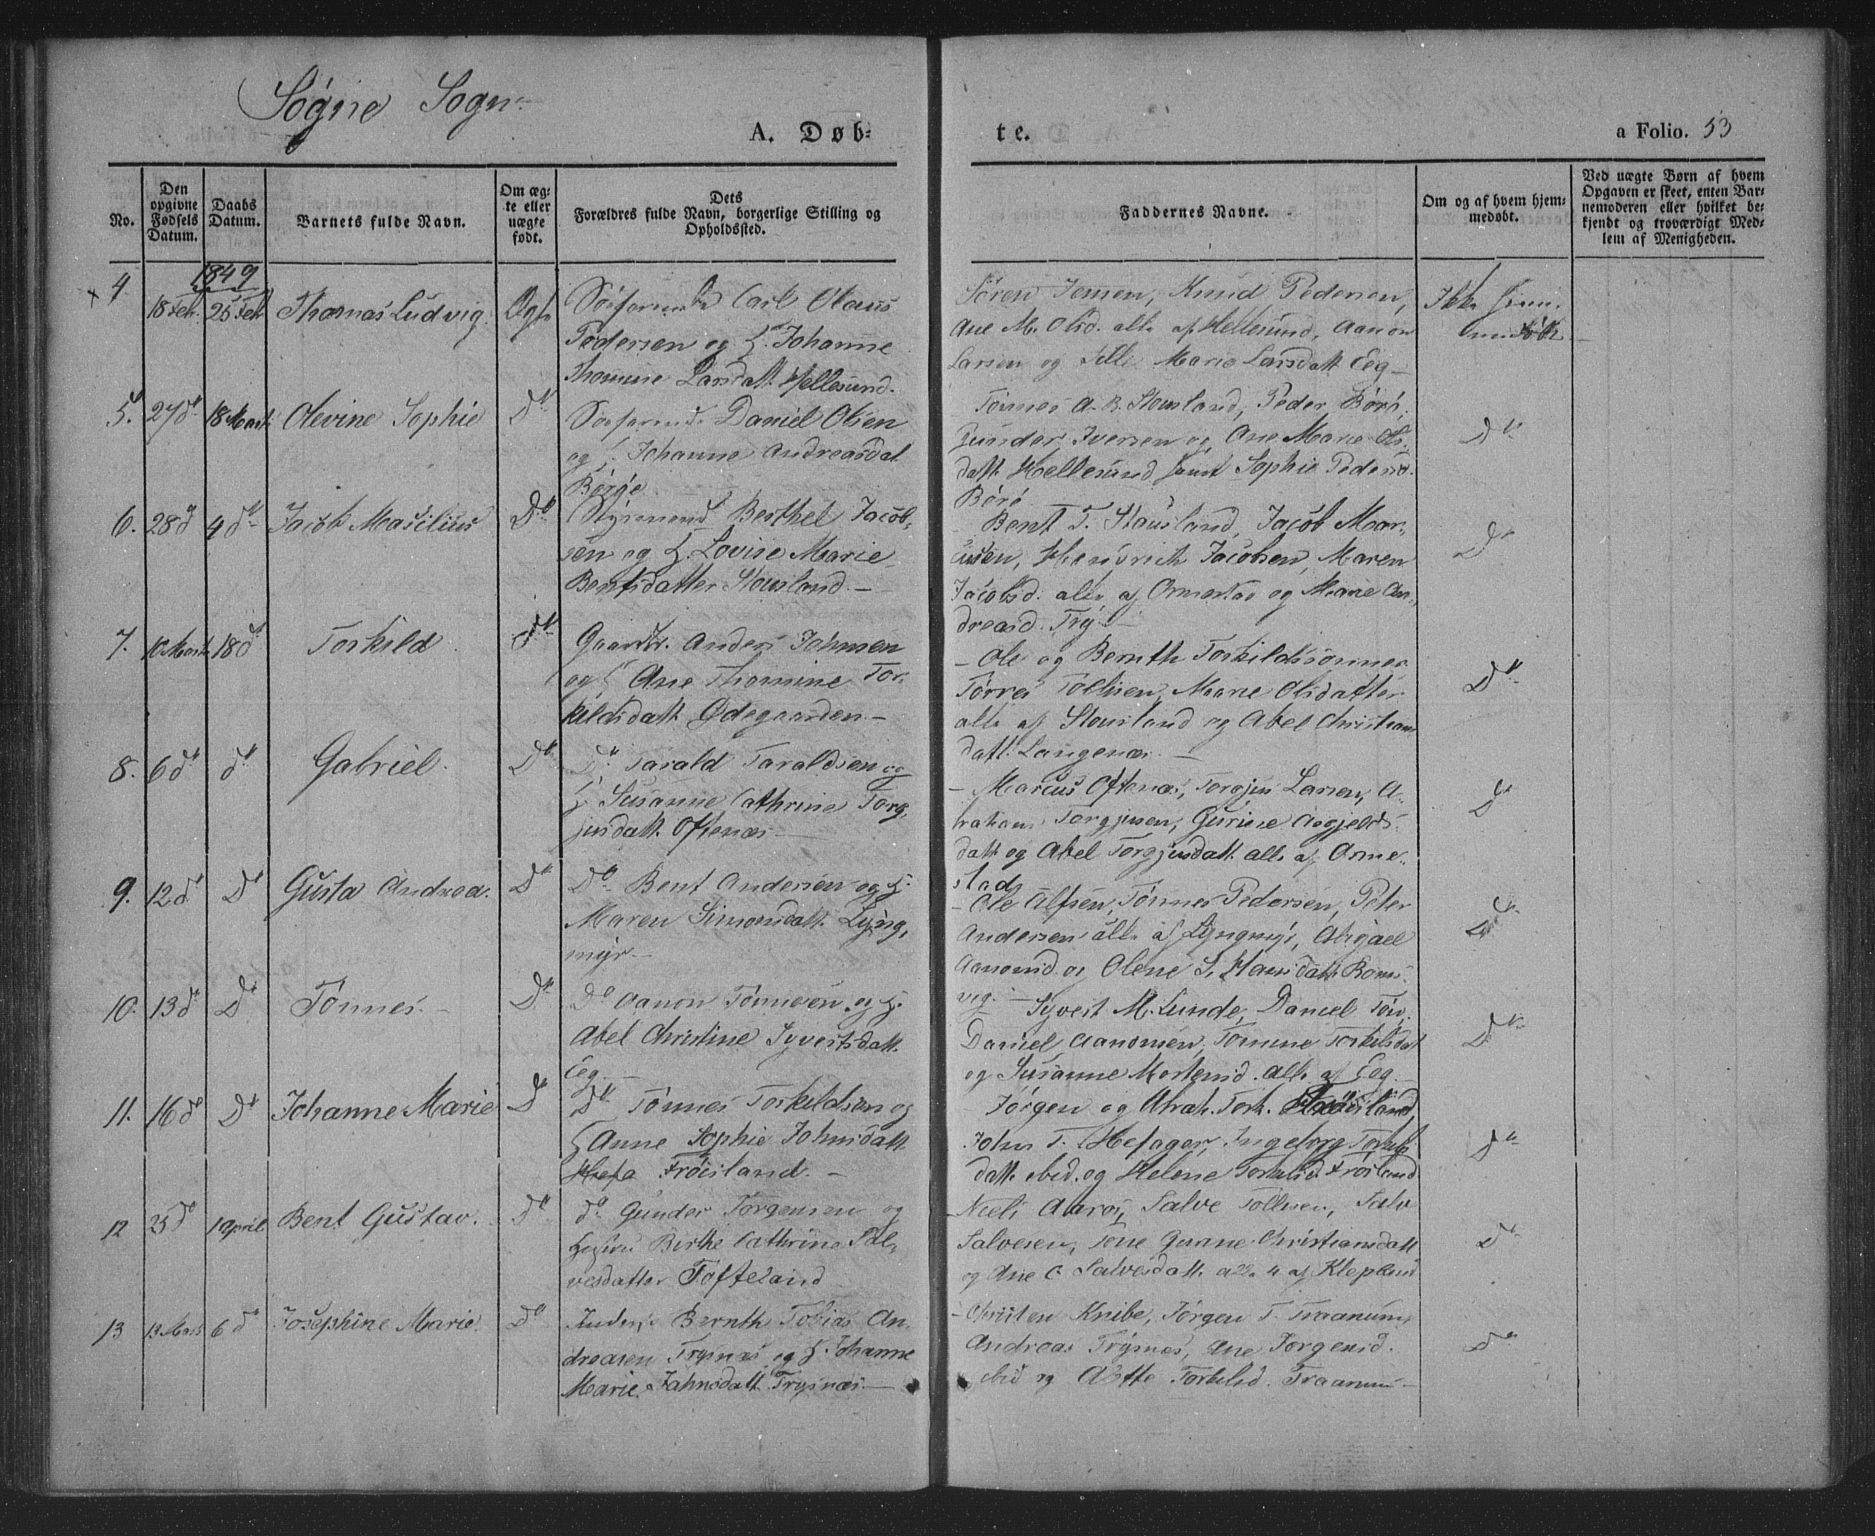 Søgne Sogn
A. Døb-
te.
a Folio. 53
No.
Den opgivne Fødsels Datum.
Daabs Datum.
Barnets fulde Navn.
Om ægte eller uægte født.
Dets
Forældres fulde Navn, borgerlige Stilling og
Opholdssted.
Faddernes Navne.
Om og af hvem hjem-
medøbt.
Ved uægte Børn af hvem
Opgaven er skeet, enten Bar-
nemoderen eller hvilket be-
kjendt og troværdigt Med-
lem af Menigheden.
1849
4 18 Feb. 25 Feb Thomas Ludvig Ægte
Søfarende Carl Olaus
Pedersen og H. Johanne
Thomine Larsdatt. Hellesund.
Søren Jensen, Knud Pedersen,
Ane M. Olsd. alle af Hellesund, Aanon
Larsen og Marie Larsdatt Eeg
Ikke hjem-
medøbt
5. 27 do 18 Marts Olevine Sophie Do
Søfarende Daniel Olsen
og H. Johanne Andreasdat.
Børøe
Tønnes A. B. Stousland, Peder Børø,
Gunder Iversen og Ane Marie Ols-
datt. Hellesund samt Sophie Pedersd.
Børø
Do
6. 28 d 4 do Jacob Marcilius Do
Styrmand Berthel Jacob-
sen og H. Lovise Marie
Bentsdatter Stousland.
Bent T. Stousland, Jacob Mar-
cusen, Hendrich Jacobsen, Maren
Jacobsd. alle af Ormestad og Marie An-
dreasd. Try
Do
7. 10 Marts 18 d Torkild do
Gaardbr. Anders Johnsen
og H. Ane Thomine Tor-
kildsdatt. Ødegaarden
Ole og Bernth Torkildssønner
Tørres Tollisen, Marie Olsdatter
alle af Stousland og Abel Christians
datt. Langenæs.
Do
8. 6 do do Gabriel. Do
Do Tarald Taraldsen og
H. Susanne Cathrine Torg-
jusdatt. Oftenæs
Marcus Oftenæs, Torgjus Larsen, A-
braham Torgjusen, Gurine Asgjelds-
datt og Abel Torgjusdatt. alle af Orme-
stad
Do
9. 12 do Do Gusta Andrea. Do
Do Bent Andersen og H.
Maren Simonsdatt. Lyng-
myr
Ole Alfsen, Tønnes Pedersen, Peter
Andersen alle af Lyngmyr, Abigael
Aanonsd. og Olene S. Hansdatt. Roms-
vig.
Do
10. 13 do Do Tønnes. Do
Do Aanon Tønnesen og H.
Abel Christine Syvertsdatt.
Eeg.
Syvert M. Lunde, Daniel Tøn.
Daniel Aanonsen, Tomine Torkilsdat
og Susanne Mortensd. alle af Eeg.
Do
11. 16 do Do Johanne Marie Do
Do Tønnes Torkildsen og
H. Anne Sophie Johnsdatt.
Frøisland.
Jørgen og Abrah. Tork. Frøisland,
John T. Hefager, Ingeborg Torkils
datt. ibid. og Helene Torkilsd. Frøisland
Do
12 25 do 1 April. Bent Gustav. Do
do Gunder Torgersen og
Hustru Birthe Cathrine Sal-
vesdatter Tofteland
Niels Aarøs, Salve Tollisen, Salve
Salvesen, Tene Gurine Christiansdatt
og Ane C. Salvesdatt. alle 4 af Klepland
Do
13 13 Marts 6 do Josephine Marie. Do
Inderst Bernth Tobias An-
dreasen Trysnæs og H. Johanne
Marie Jahnsdatt. Trysnæs.
Christen Knibe, Jørgen T. Traanum,
Andreas Trysnæs, Ane Jørgensd.
ibid og Aatte Torkilsd. Traanum
Do